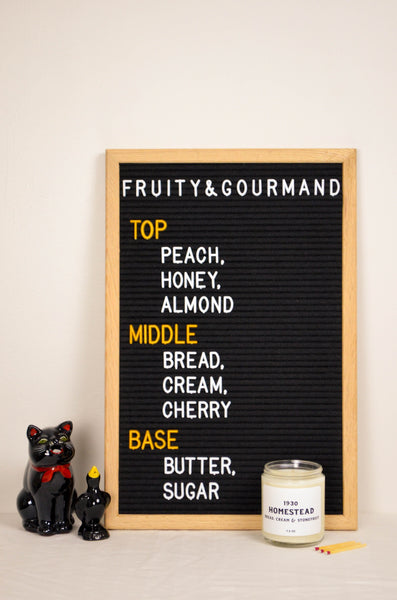 FRUITY&GOURMAND
TOP
PEACH,
HONEY,
ALMOND
MIDDLE
BREAD,
CREAM,
CHERRY
BASE
BUTTER,
SUGAR
1930
HOMESTEAD
BREAD, CREAM & STONEFRUIT